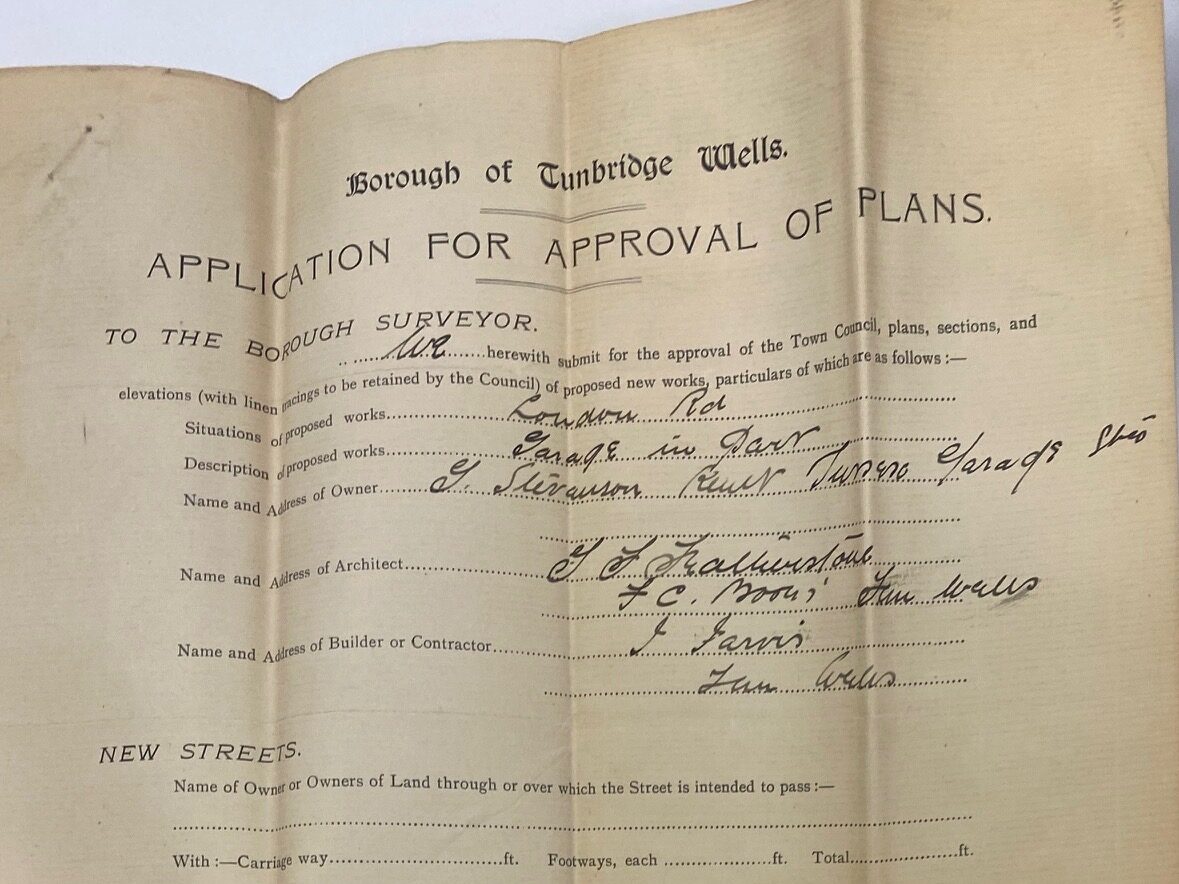 Borough of Tunbridge Wells.
APPLICATION FOR APPROVAL OF PLANS.
TO THE BOROUGH SURVEYOR.
We herewith submit for the approval of the Town Council, plans, sections, and
elevations (with linen tracings to be retained by the Council) of proposed new works, particulars of which are as follows :—
Situations of proposed works London Rd
Description of proposed works Garage in
Name and Address of Owner G. Stevanson Garage
Name and Address of Architect
F C. Tun Wells
Name and Address of Builder or Contractor J Jarvis
Tun Wells
NEW STREETS.
Name of Owner or Owners of Land through or over which the Street is intended to pass :—
With :—Carriage way ft. Footways, each ft. Total ft.